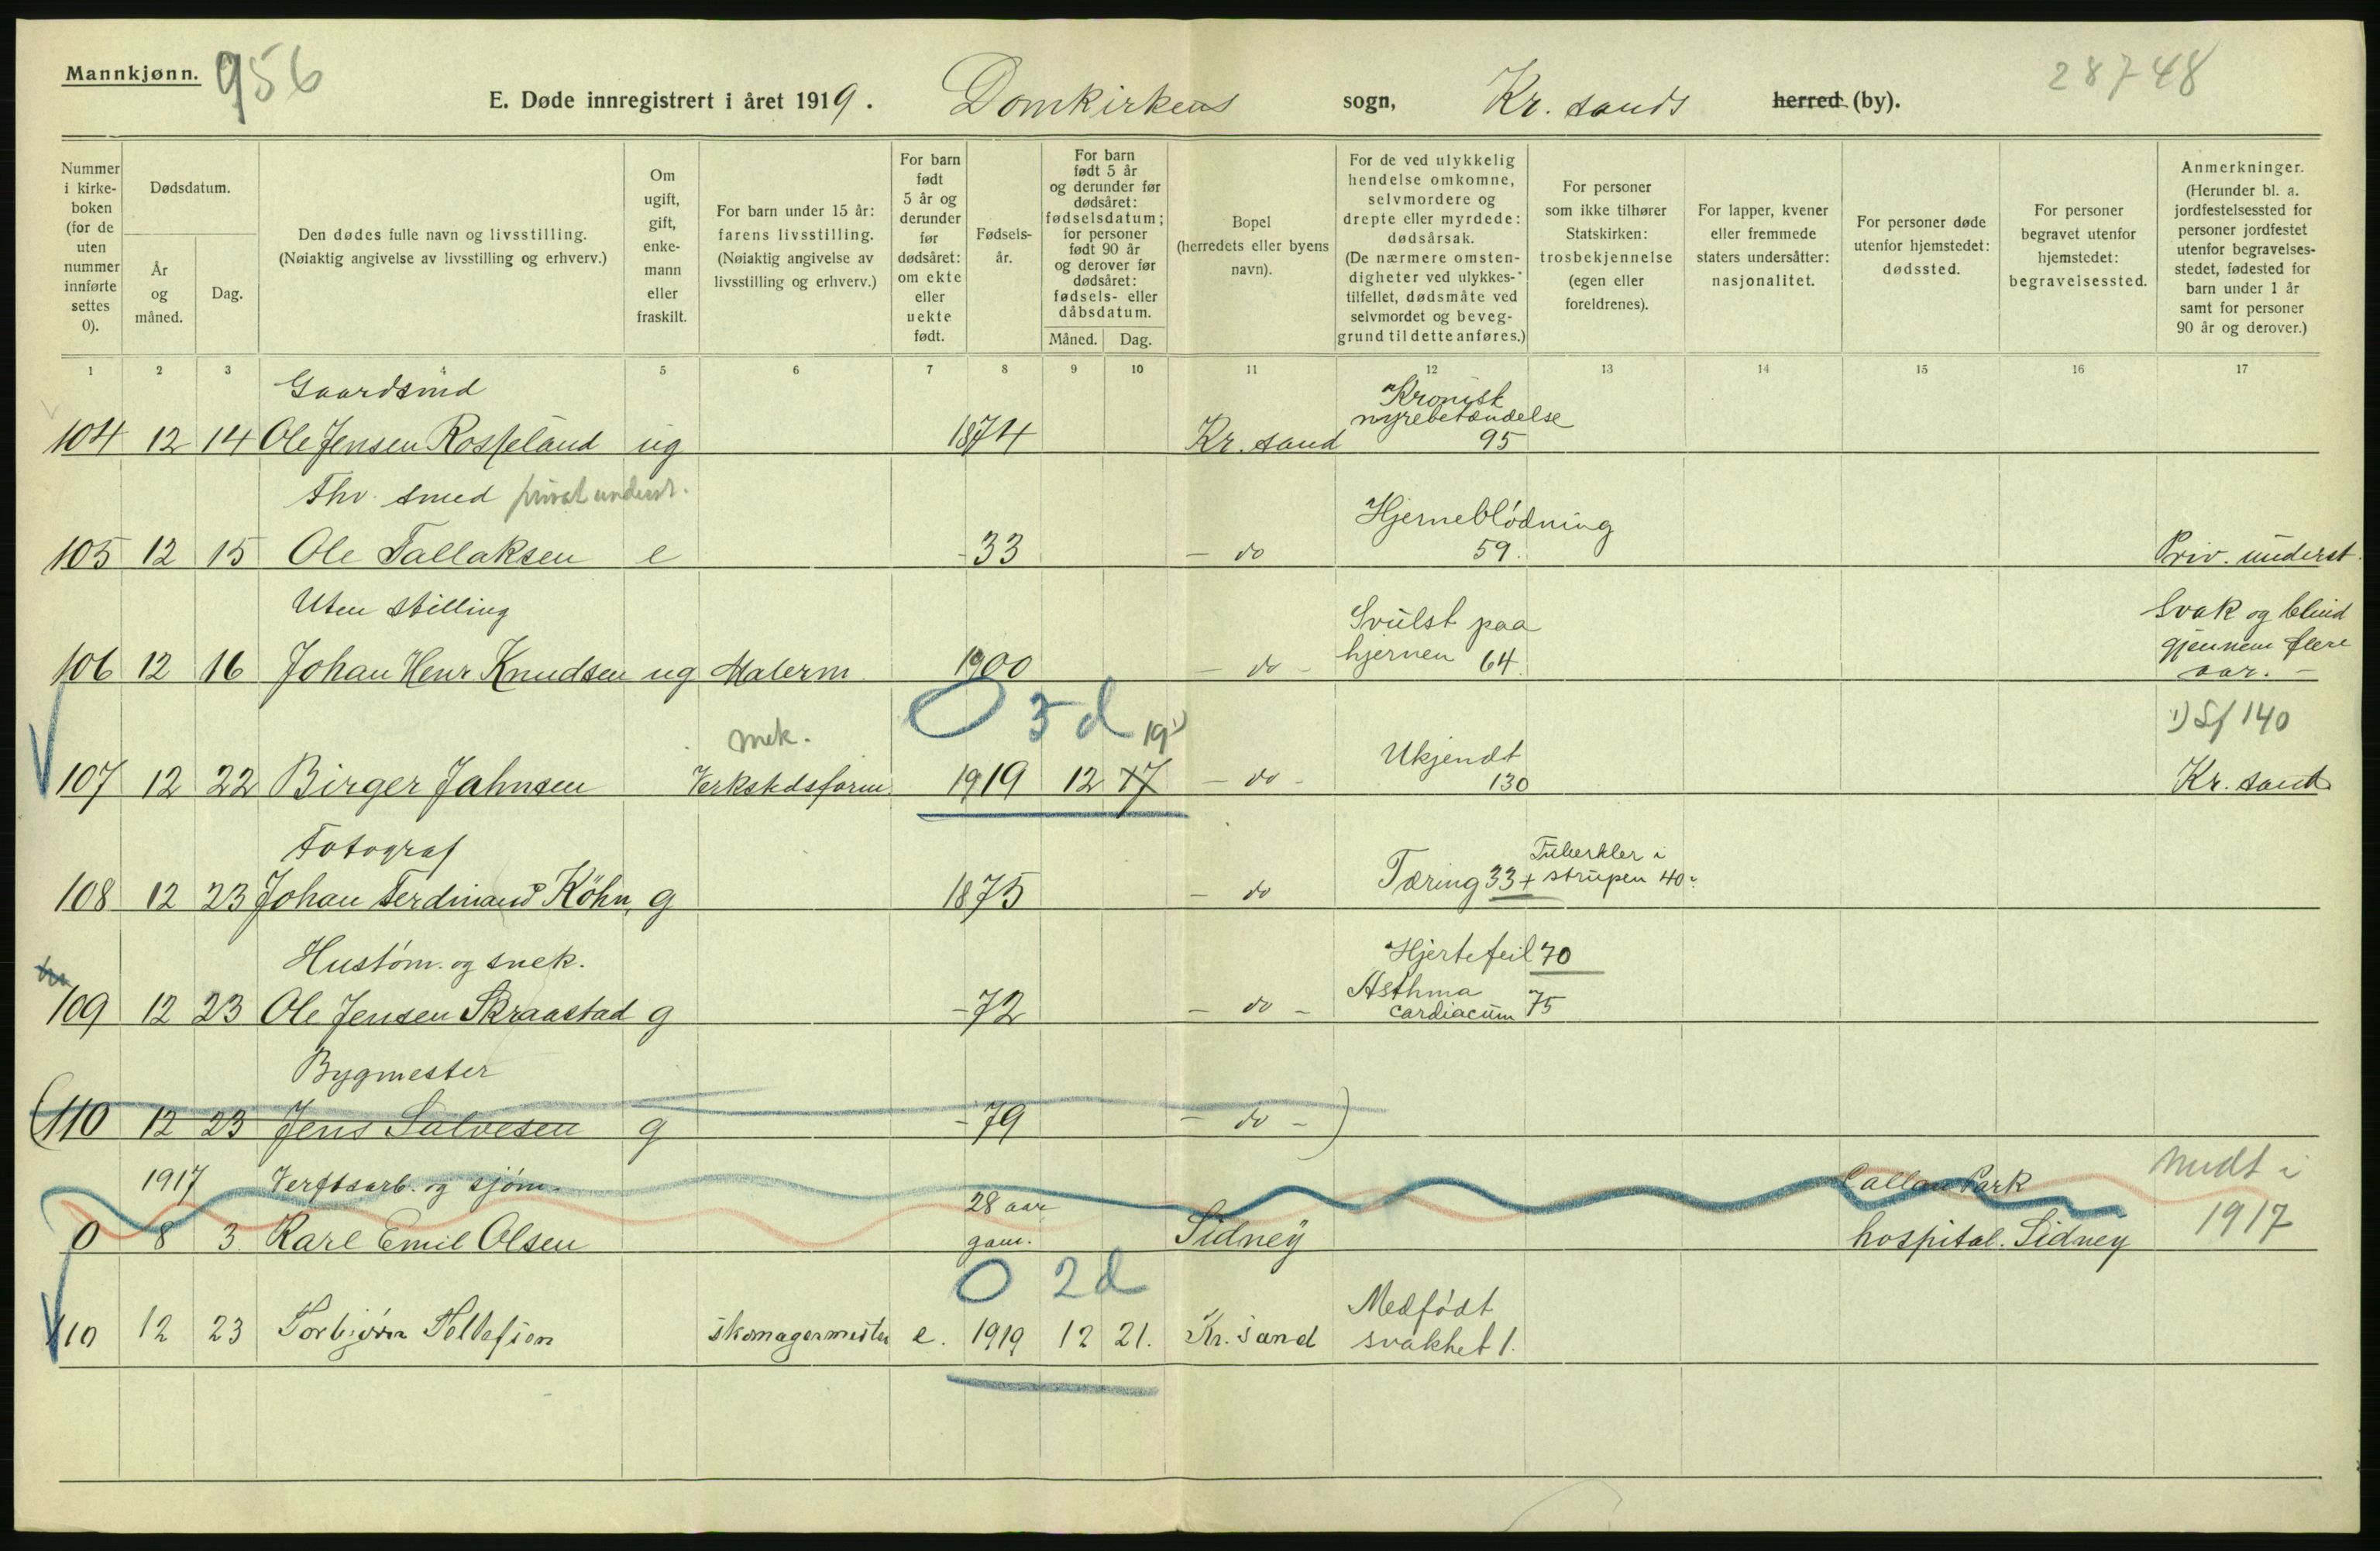 Mannkjønn. 956
28748
E. Døde innregistrert i året 1919. Domkirkens sogn, Kr. sands herred (by).
Nummer i kirkeboken (for de uten nummer innførte settes 0).
Dødsdatum.
År og måned.
Dag.
Den dødes fulle navn og livsstilling.
(Nøiaktig angivelse av livsstilling og erhverv.)
Om ugift, gift, enkemann eller fraskilt.
For barn under 15 år: farens livsstilling.
(Nøiaktig angivelse av livsstilling og erhverv.)
For barn født 5 år og derunder før dødsåret: om ekte eller uekte født.
Fødselsår.
For barn født 5 år og derunder før dødsåret: fødselsdatum; for personer født 90 år og derover før dødsåret: fødsels- eller dåbsdatum.
Måned. Dag.
Bopel (herredets eller byens navn).
For de ved ulykkelig hendelse omkomne, selvmordere og drepte eller myrdede: dødsårsak.
(De nærmere omstendigheter ved ulykkestilfellet, dødsmåte ved selvmordet og beveggrund til dette anføres.)
For personer som ikke tilhører Statskirken: trosbekjennelse (egen eller foreldrenes).
For lapper, kvener eller fremmede staters undersåtter: nasjonalitet.
For personer døde utenfor hjemstedet: dødssted.
For personer begravet utenfor hjemstedet: begravelsessted.
Anmerkninger.
(Herunder bl. a. jordfestelsessted for personer jordfestet utenfor begravelsesstedet, fødested for barn under 1 år samt for personer 90 år og derover.)
1 2 3 4 5 6 7 8 9 10 11 12 13 14 15 16 17
Gaardsmd Kronisk nyrebetændelse
104 12 14 Ole Jensen Rosseland ug 1874 Kr. sand 95
Fhv. smed privat underst. Hjerneblødning
105 12 15 Ole Tallaksen e - 33 - do 59. Priv. underst.
Uten stilling Svulst paa Svak og blind
106 12 16 Johan Henr Knudsen ug Malerm 1900 - do - hjernen 64. gjennem flere aar. -
0 3 d 19 1) 1) Sf 140
mek. Ukjendt
107 12 22 Birger Jahnsen Verkstedsform 1919 12 17 - do - 130 Kr. sand
Fotograf Tuberkler i
108 12 23 Johan Ferdinand Köhn, g 1875 - do Tæring 33 + strupen 40
Hustøm. og snek. Hjertefeil 70
109 12 23 Ole Jensen Skraastad g - 72 - do - Asthma cardiacum 75
Bygmester
(110 12 23 Jens Salvesen g - 79 - do - )
1917 Verftsarb. og sjøm. 28 aar Callan Park
0 8 3 Karl Emil Olsen gam. Sidney hospital. Sidney 1917
0 2d
110 12 23 Torbjørn Tellefsen skomagermester e. 1919 12 21. Kr. sand Medfødt svakhet 1.